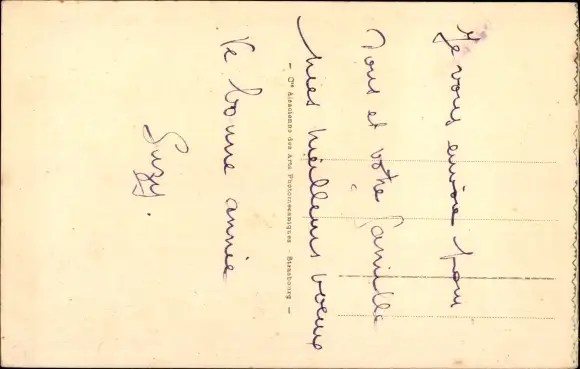 Je vous envoie pour
Vous et votre famille
Mes meilleurs voeux
De bonne année
Suzy.
— Cie Alsacienne des Arts Photomécaniques - Strasbourg —